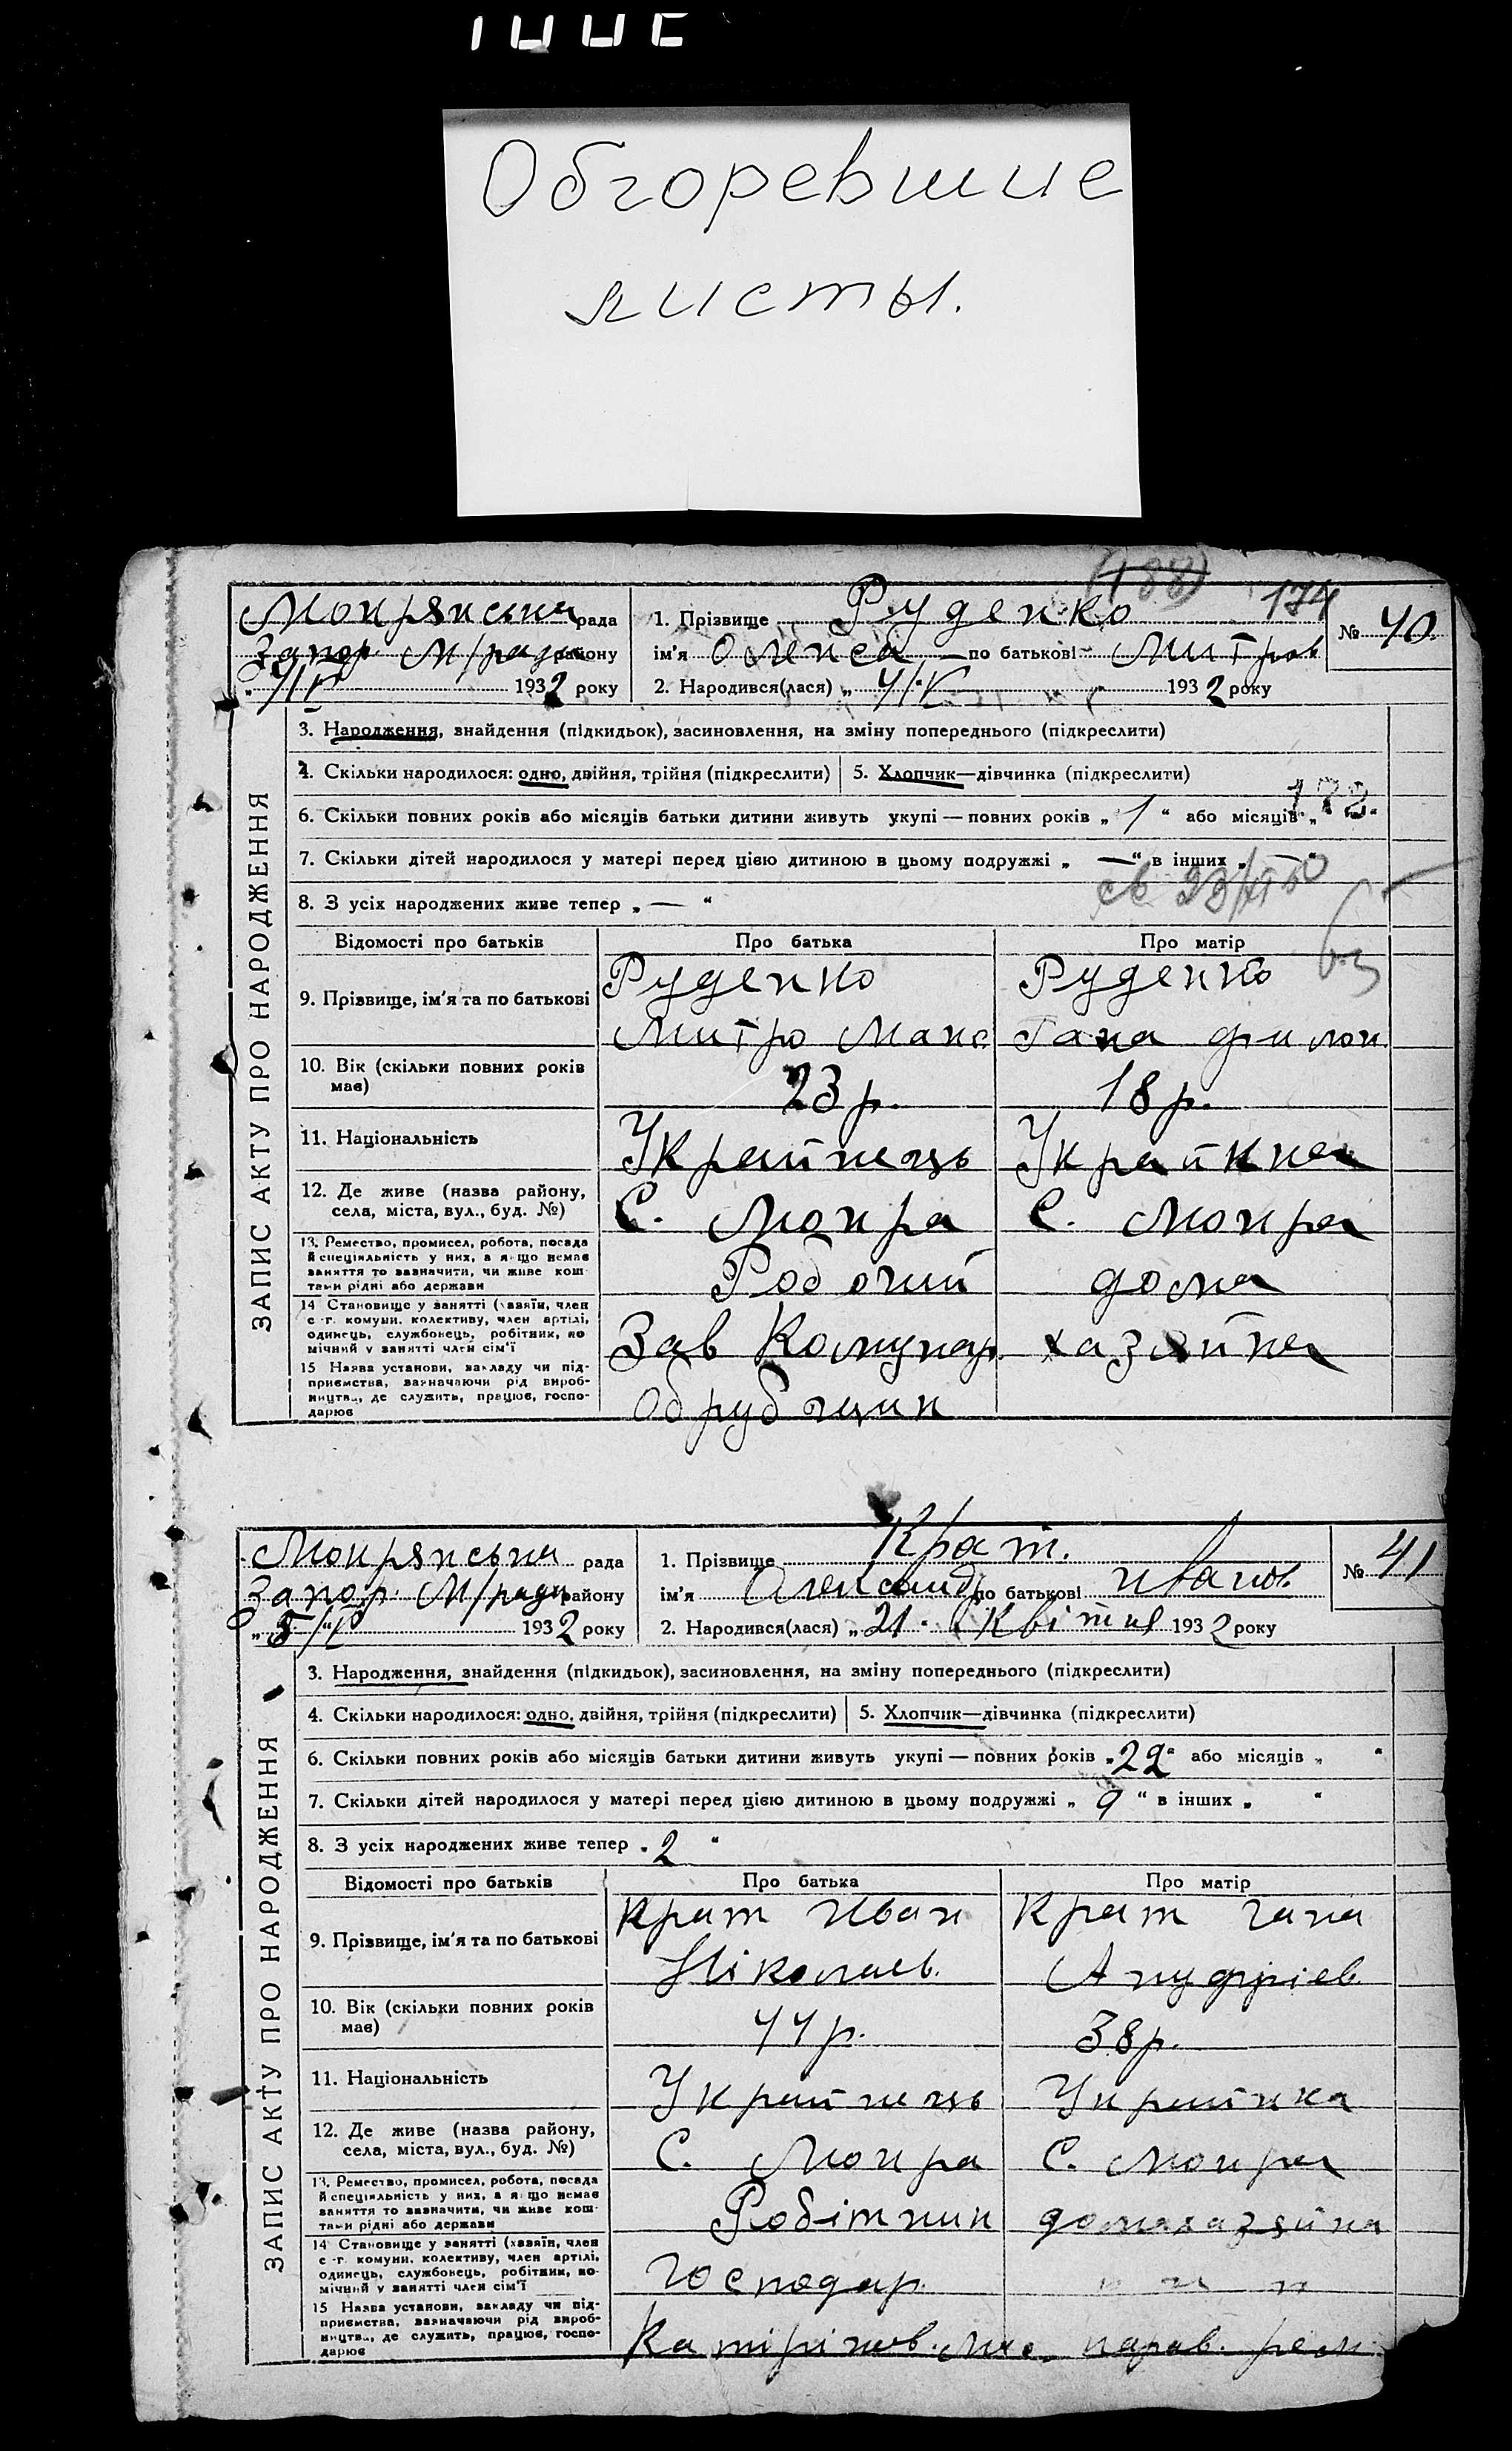 Обгоревшие
листы.
(188)
Мокрянська рада
1. Прізвище Руденко 174
№ 40.
Запор М/ради району
ім'я по батькові Митров
4/V 1932 року
2. Народився(лася) „ 4/V 1932 року
ЗАПИС АКТУ ПРО НАРОДЖЕННЯ
3. Народження, знайдення (підкидьок), засиновлення, на зміну попереднього (підкреслити)
4. Скільки народилося: одно, двійня, трійня (підкреслити)
5. Хлопчик—дівчинка (підкреслити)
6. Скільки повних років або місяців батьки дитини живуть укупі — повних років „ 1 “ або місяців „ “
7. Скільки дітей народилося у матері перед цією дитиною в цьому подружжі „ — “ в інших „ — “
8. З усіх народжених живе тепер „ — “
Відомості про батьків
Про батька
Про матір
9. Прізвище, ім'я та по батькові
Руденко
Митро Макс.
Руденко
Гана Филон.
10. Вік (скільки повних років
має)
23 р.
18 р.
11. Національність
Українець
Українка
12. Де живе (назва району,
села, міста, вул., буд. №)
С. Мокра
С. Мокра
13. Ремество, промисел, робота, посада
й спеціяльність у них, а якщо немає
заняття то зазначити, чи живе кош-
тами рідні або держави
Робочий
дома
14 Становище у занятті (хазяїн, член
с.-г. комуни, колективу, член артілі,
одинець, службовець, робітник, по-
мічний у занятті член сім'ї
Зав Комунар.
хазяйка
15 Назва установи, закладу чи під-
приємства, зазначаючи рід вироб-
ництва, де служить, працює, госпо-
дарює
обрубщик
Мокрянська рада
1. Прізвище Крат.
№ 41
Запор. М/ради району
ім'я Александ по батькові Иванов.
„ 8/V 1932 року
2. Народився(лася) „ 21 “ Квітня 1932 року
ЗАПИС АКТУ ПРО НАРОДЖЕННЯ
3. Народження, знайдення (підкидьок), засиновлення, на зміну попереднього (підкреслити)
4. Скільки народилося: одно, двійня, трійня (підкреслити)
5. Хлопчик—дівчинка (підкреслити)
6. Скільки повних років або місяців батьки дитини живуть укупі — повних років „ 22 “ або місяців „ “
7. Скільки дітей народилося у матері перед цією дитиною в цьому подружжі „ 9 “ в інших „ “
8. З усіх народжених живе тепер „ 2 “
Відомості про батьків
Про батька
Про матір
9. Прізвище, ім'я та по батькові
Крат Иван
Ніколаєв.
Крат Гана
Ануфрієв.
10. Вік (скільки повних років
має)
44 р.
38 р.
11. Національність
Українець
Українка
12. Де живе (назва району,
села, міста, вул., буд. №)
С. Мокра
С. Мокра
13. Ремество, промисел, робота, посада
й спеціяльність у них, а якщо немає
заняття то зазначити, чи живе кош-
тами рідні або держави
Робітник
домахазяйка
14 Становище у занятті (хазяїн, член
с.-г. комуни, колективу, член артілі,
одинець, службовець, робітник, по-
мічний у занятті член сім'ї
Господар.
15 Назва установи, закладу чи під-
приємства, зазначаючи рід вироб-
ництва, де служить, працює, госпо-
дарює
парав. рем.